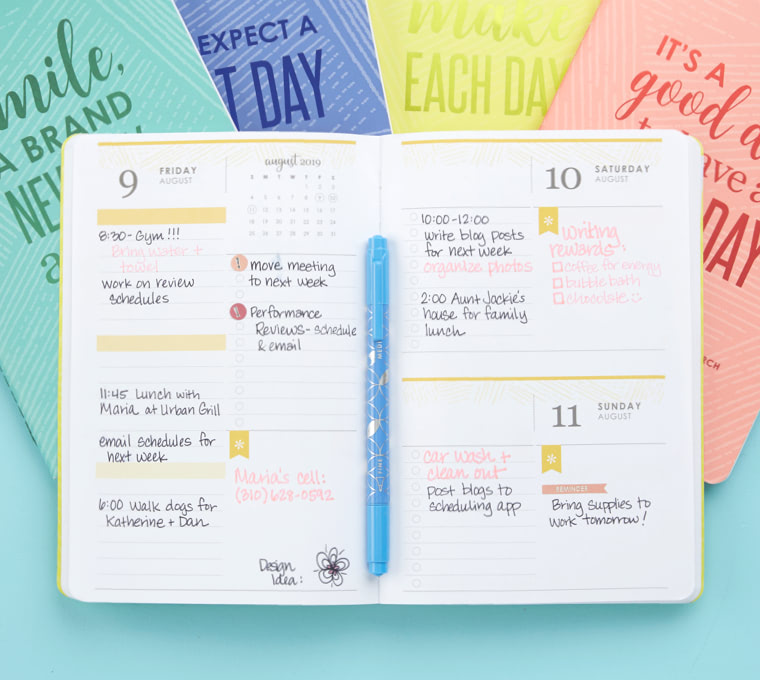 mile,
A BRAND
NEW
EXPECT A
T DAY
make
EACH DAY
IT'S A
good d
DAY
9
FRIDAY
AUGUST
8:30- Gym!!!
Bring water +
towel
work on review
schedules
11:45 Lunch with
Maria at Urban Grill
email schedules for
next week
6:00 Walk dogs for
Katherine + Dan
august 2019
S M T W T F S
1 2 3
4 5 6 7 8 9 10
11 12 13 14 15 16 17
18 19 20 21 22 23 24
25 26 27 28 29 30 31
! move meeting
to next week
!! Performance
Reviews- schedule
& email
Maria's cell:
(310) 628-0592
Design
Idea:
10
SATURDAY
AUGUST
10:00-12:00
write blog posts
for next week
organize photos
2:00 Aunt Jackie's
house for family
lunch
Writing
rewards:
coffee for energy
bubble bath
chocolate
11
SUNDAY
AUGUST
car wash +
clean out
post blogs to
scheduling app
REMINDER
Bring supplies to
work tomorrow!